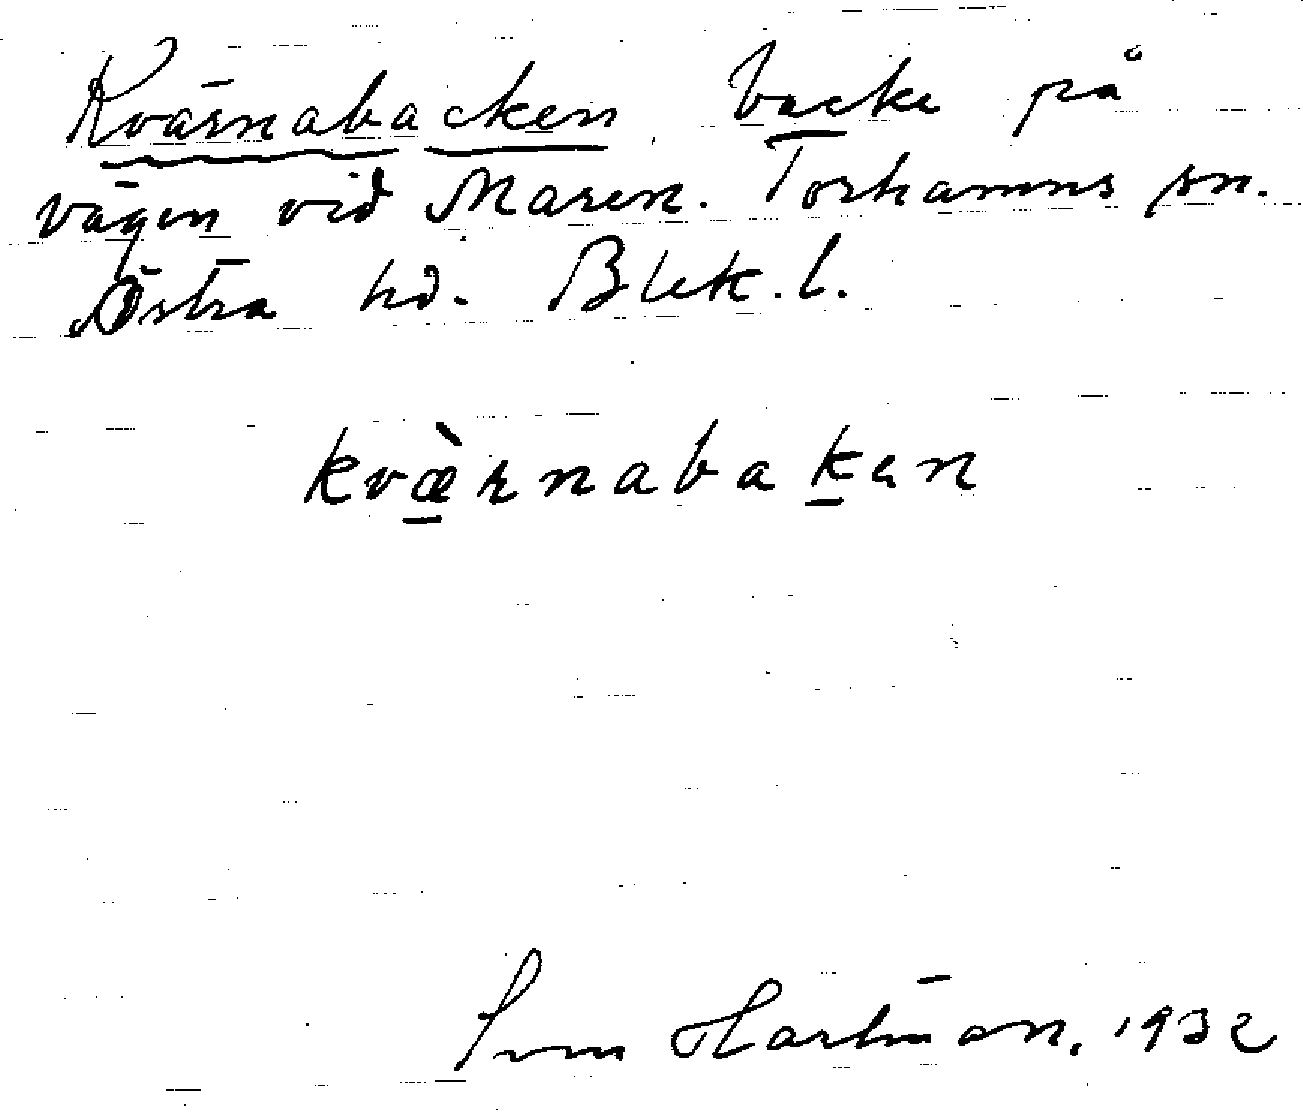 Kvärnabacken, backe på
vägen vid Maren. Torhamns sn.
Östra hd. Blek. l.
kvæ̀rnabaken
Sven Hartman, 1932